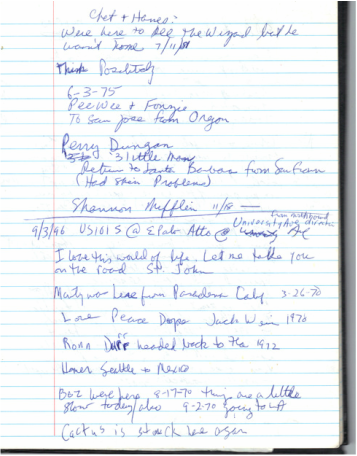 Chet + Hanes:
Were here to see the Wizard but he
wasn't home 7/11/81
Think Positively
6-3-75
PeeWee + Fonzie
To San Jose from Orgon
Perry Dungan
3 little
Return to Santa Barbara from San Fran
(Had Skin Problems)
Shannon Mufflin 11/18 —
from northbound
University Ave direction
9/3/96 US101 S @ E Palo Alto @
I love this world of life. Let me take you
on the road St. John
Marty was here from Pasadena Calf 3-26-70
Love Peace Dope Jack W 1970
Ronn Duff headed back to the 1972
Homer Seattle to Mexico
Boz were here 8-17-70 things are a little
slow today/also 9-2-70 going to LA
Cactus is stuck here again